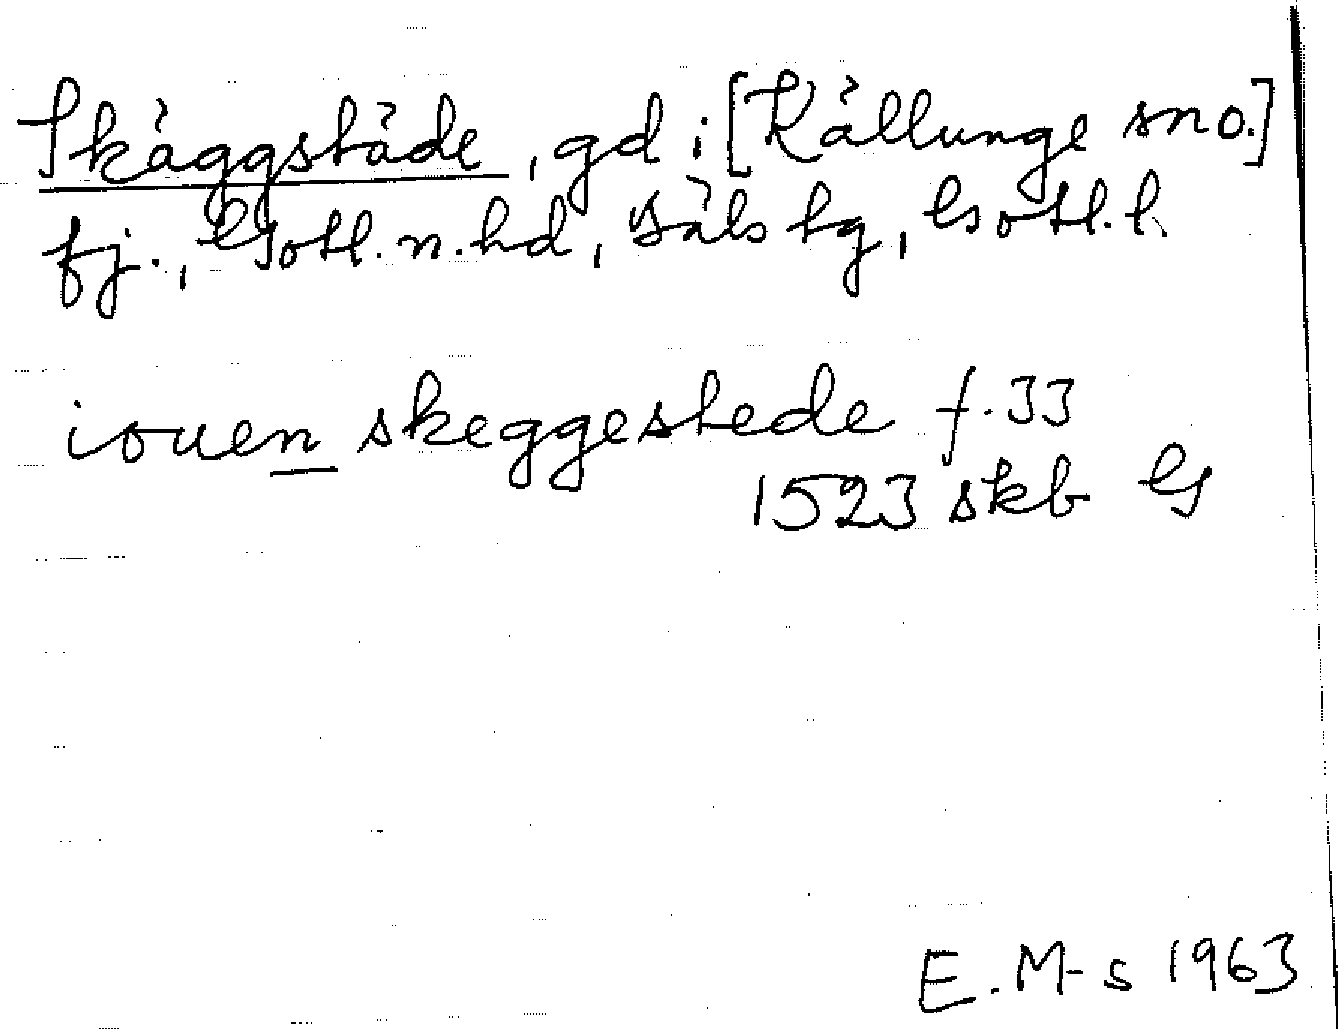 Skäggstäde, gd i [Källunge sn o.]
fj., Gotl. n. hd, Bäls tg, Gotl. l.
iouen skeggestede f. 33
1523 skb G
E. M-s 1963